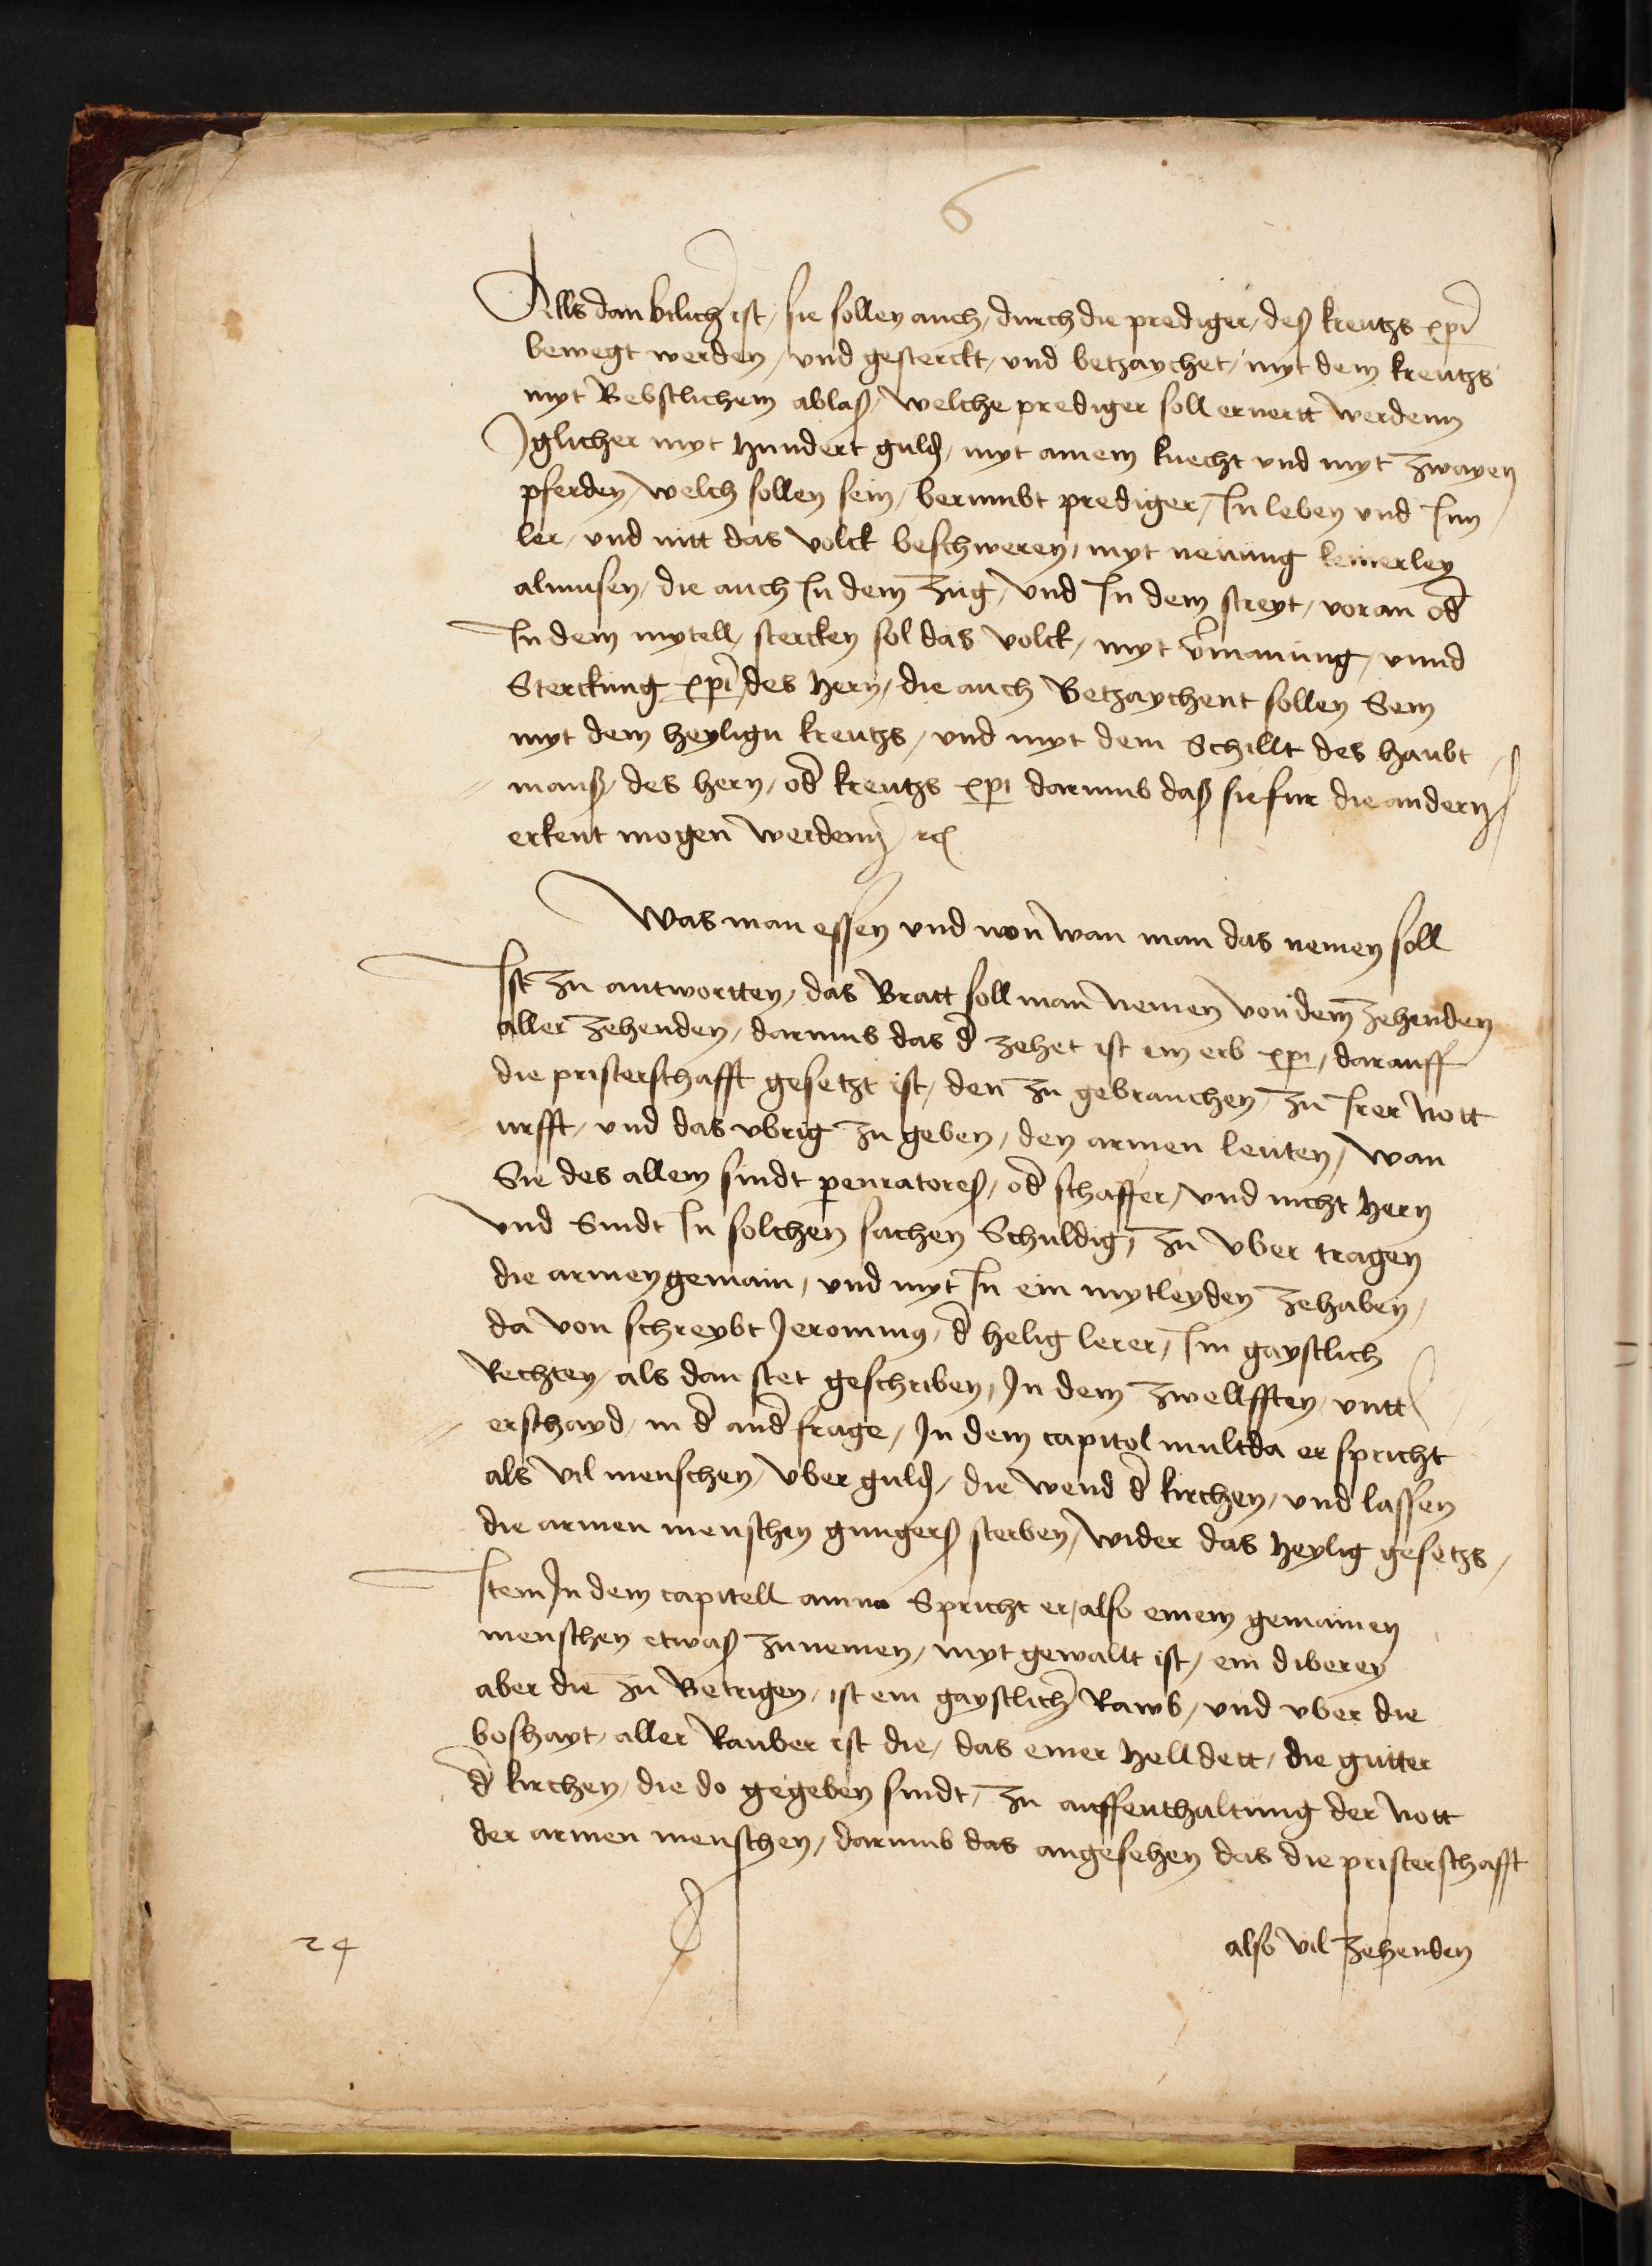 6
Alls dan bilich ist, sie sollen auch, durch die prediger, deß kreutzs xpi
bewegt werden, und gesterckt, und betzaychet, myt dem kreutzs
myt Bebstlichem ablaß, welche prediger soll ernertt werdenn
Iglicher myt hundert guld, myt ainem knecht und myt zwayen
pferden, welch sollen sein, berumbt prediger, In leben und Inn
ler, und nitt das volck beschweren, myt nemung keinerley
almusen, die auch In dem zug, und In dem streyt, voran od
In dem mytell, stercken sol das volck, myt vermanung, vnnd
Sterckung xpi, des hern, die auch Betzaychent sollen Sein
myt dem heylign kreutzs, und myt dem Schillt des haubt
mans, des hern, od kreutzs xpi darumb daß sie fur die andern
erkent mogen werdenn rc
Was man essen und von wan man das nemen soll
Ist zu antwortten, das Bratt soll man nemen von dem zehenden
aller zehenden, darumb das d zehet ist ein erb xpi, darauff
die pristerschafft gesetzt ist, den zu gebrauchen, zu Irer nott
urfft, und das vbrig zu geben, den armen leuten, wan
Sie des allein sindt pcuratores, od schaffer, und nicht hern
und Sindt In solchen sachen Schuldig, zu vber tragen
die armen gemain, und myt In ein mytleyden zehaben,
da von schreybt Jeronimus, d helig lerer, Im gaystlich
Rechten, als dan stet geschriben, In dem zwellfften, untt
erschayd, in d and frage, In dem capitol multda er spricht
als vil menschen, vber guld, die wend d kirchen, und lassen
die armen menschen gungers sterben, wider das heylig gesetzs,
Item In dem capitell amico Spricht er, also einem gemainen
menschen etwaß zunemen, myt gewallt ist, ein diberey
aber die zu Betrigen, ist ein gaystlich Rawb, und vber die
boshayt, aller Rauber ist die, das einer hell dett, die gutter
d kirchen, die do gegeben sindt, zu auffenthaltung der nott
der armen menschen, darumb das angesehen das die pristerschafft
also vil zehenden
24